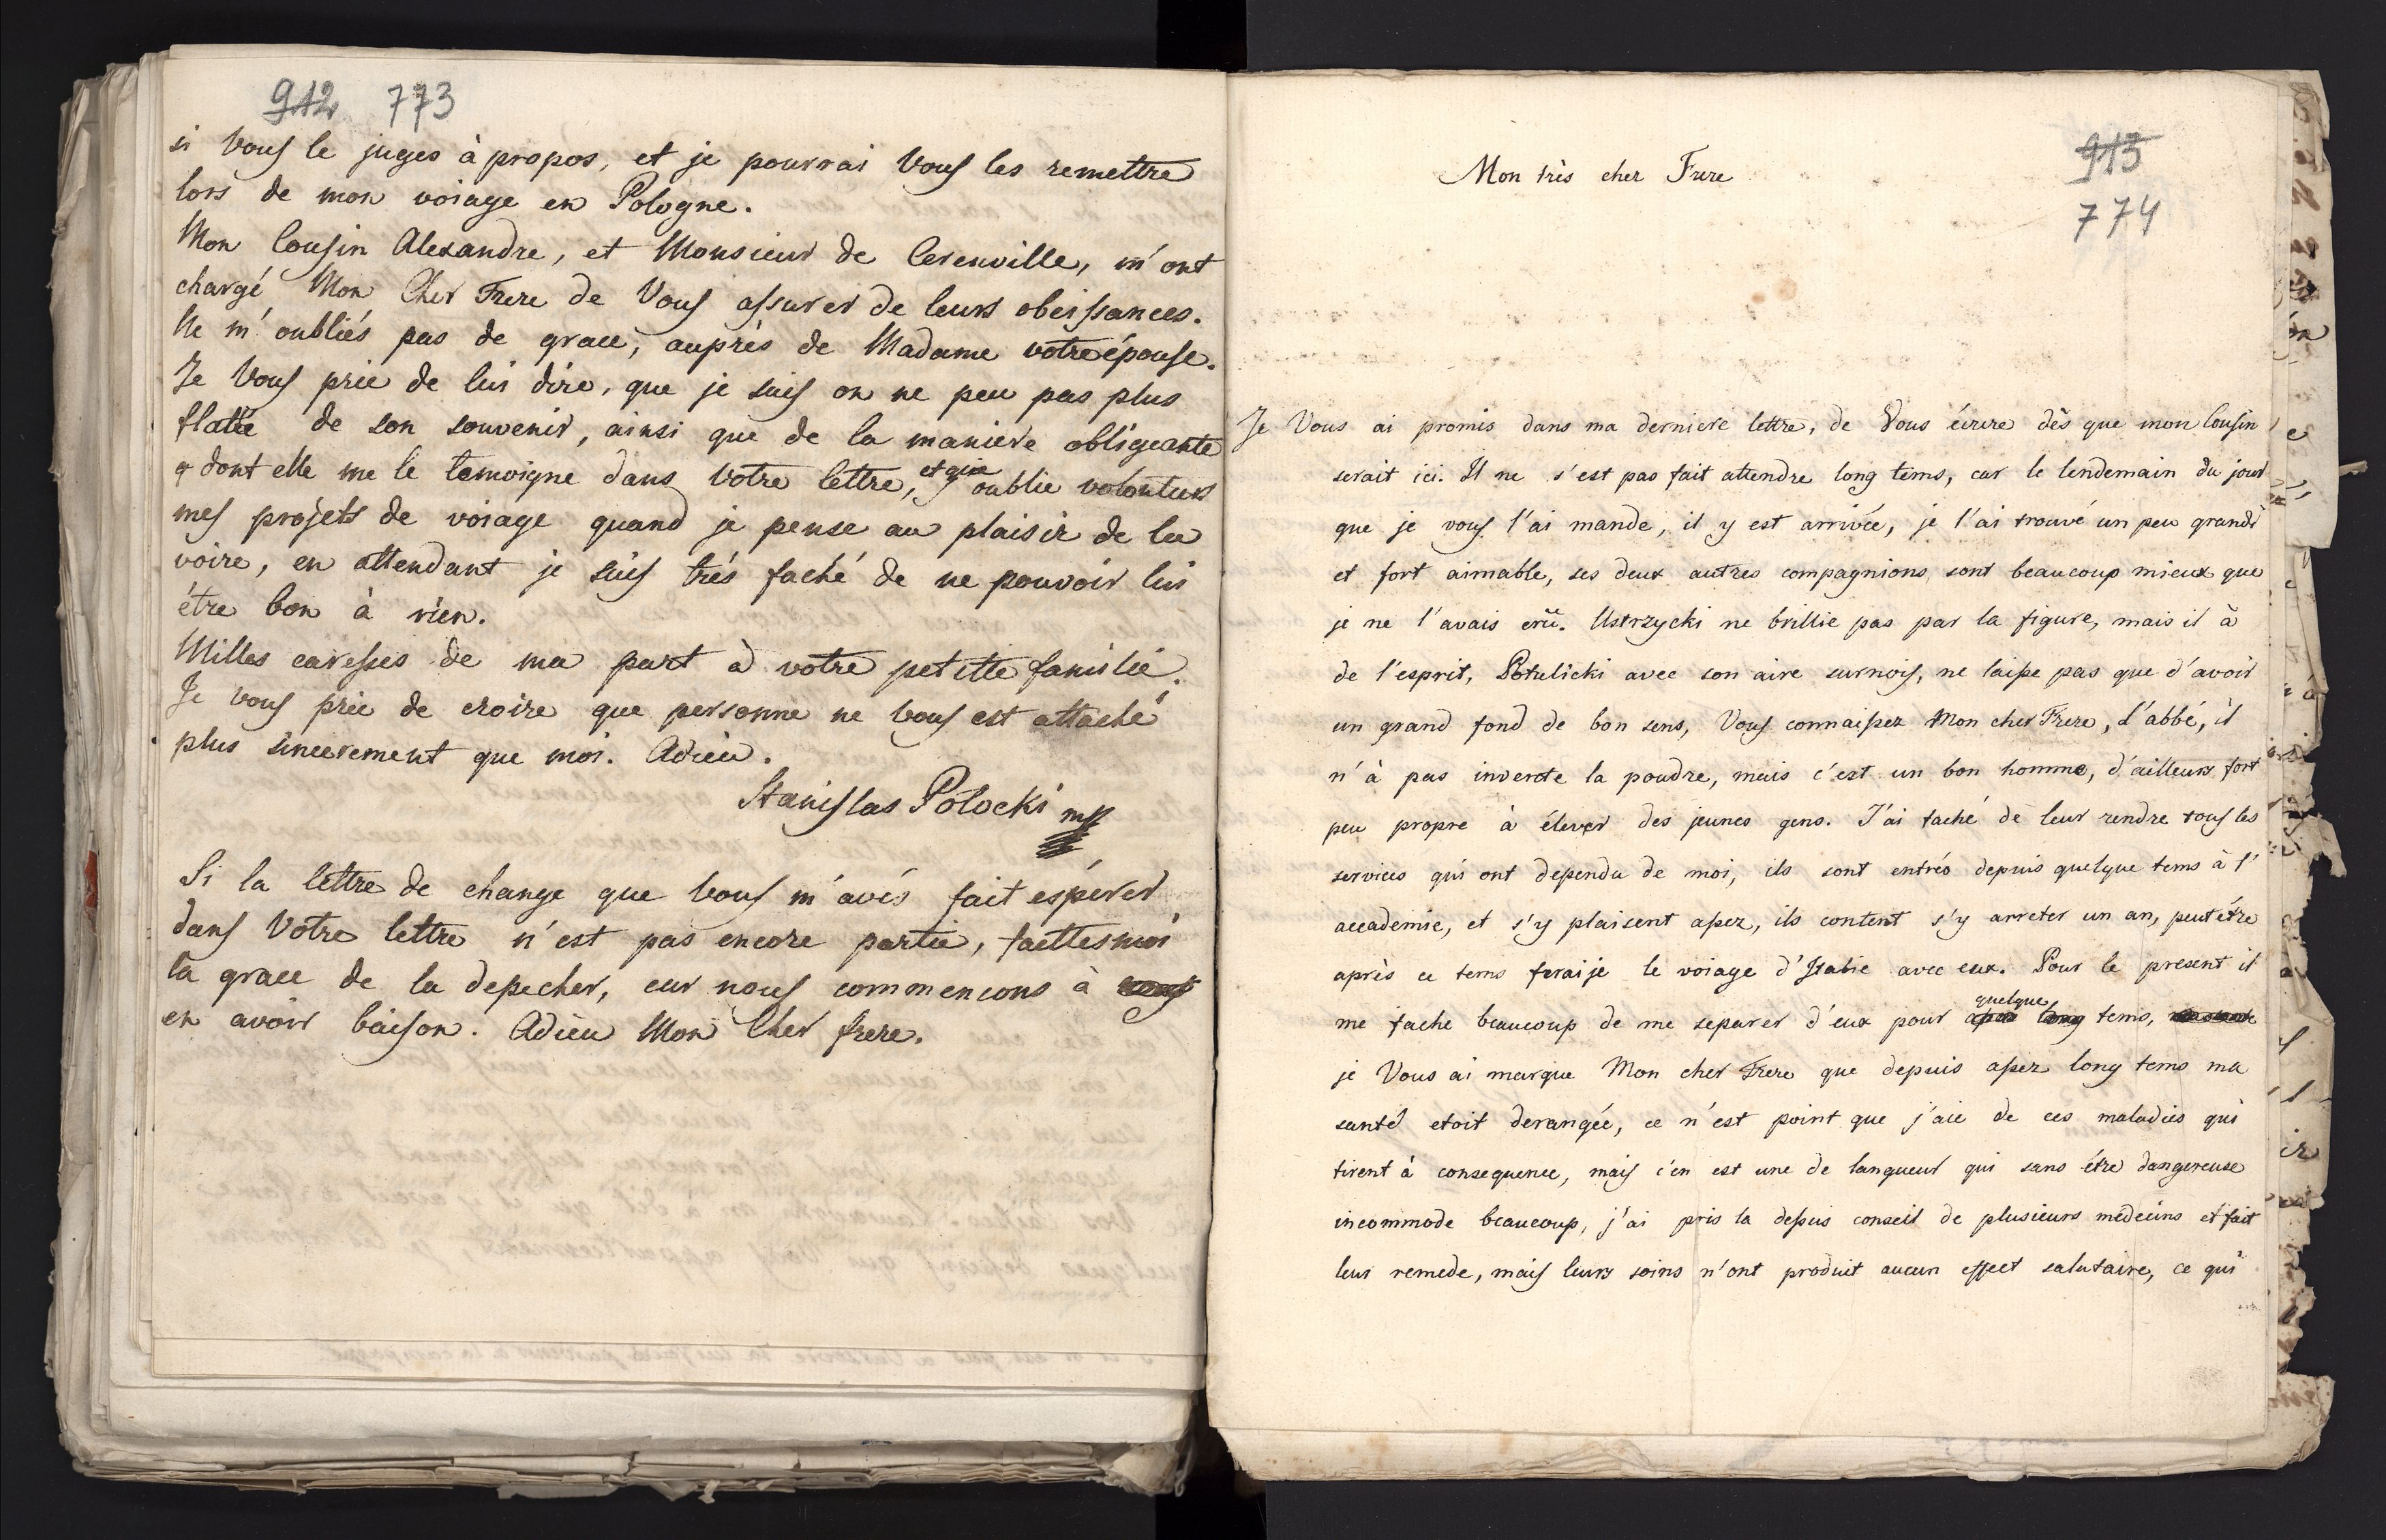 912 773
si Vous le juges à propos, et je pourrai Vous les remettre
lors de mon voiage en Pologne.
Mon Cousin Alexandre, et Monsieur de Cerenville, m'ont
chargé Mon Cher Frere de Vous assurer de leurs obeissances.
Ne m'oubliés pas de grace, auprès de Madame votre épouse.
Je Vous prie de lui dire, que je suis on ne peu pas plus
flatté de son souvenir, ainsi que de la maniere obligeante
dont elle me le temoigne dans Votre lettre, et que j'oublie volontiers
mes projets de voiage quand je pense au plaisir de la
voire, en attendant je suis trés faché de ne pouvoir lui
étre bon à rien.
Milles caresses de ma part à votre petitte famille.
Je vous prie de croire que personne ne vous est attaché
plus sincerement que moi. Adieu.
Stanislas Potocki mp
Si la lettre de change que vous m'avés fait espérer
dans Votre lettre n'est pas encore partie, faittes moi
la grace de la depecher, car nous commencons à
en avoir baison. Adieu Mon Cher frere.
913
774
Mon très cher Frere
Je Vous ai promis dans ma derniere lettre, de Vous écrire dès que mon Cousin
serait ici. Il ne s'est pas fait attendre long tems, car le lendemain du jour
que je vous l'ai mande, il y est arrivée, je l'ai trouvé un peu grandi
et fort aimable, ses deux autres compagnions sont beaucoup mieux que
je ne l'avais crû. Ustrzycki ne brillie pas par la figure, mais il à
de l'esprit, Potulicki avec son aire surnois, ne laisse pas que d'avoir
un grand fond de bon sens, Vous connaissez Mon cher Frere, L'abbé, il
n'à pas invente la poudre, mais c'est un bon homme, d'ailleurs fort
peu propre à élever des jeunes gens. J'ai taché de leur rendre tous les
services qui ont dependu de moi, ils sont entrés depuis quelque tems à l'
accademie, et s'y plaisent assez, ils content s'y arreter un an, peut étre
après ce tems ferai je le voiage d'Italie avec eux. Pour le present il
me fache beaucoup de me separer d'eux pour assez long quelque tems,
je Vous ai marque Mon cher Frere que depuis assez long tems ma
santé etoit derangée, ce n'est point que j'aie de ces maladies qui
tirent à consequence, mais c'en est une de langueur qui sans étre dangereuse
incommode beaucoup, j'ai pris la dessus conseil de plusieurs médecins et fait
leur remede, mais leurs soins n'ont produit aucun effect salutaire, ce qui